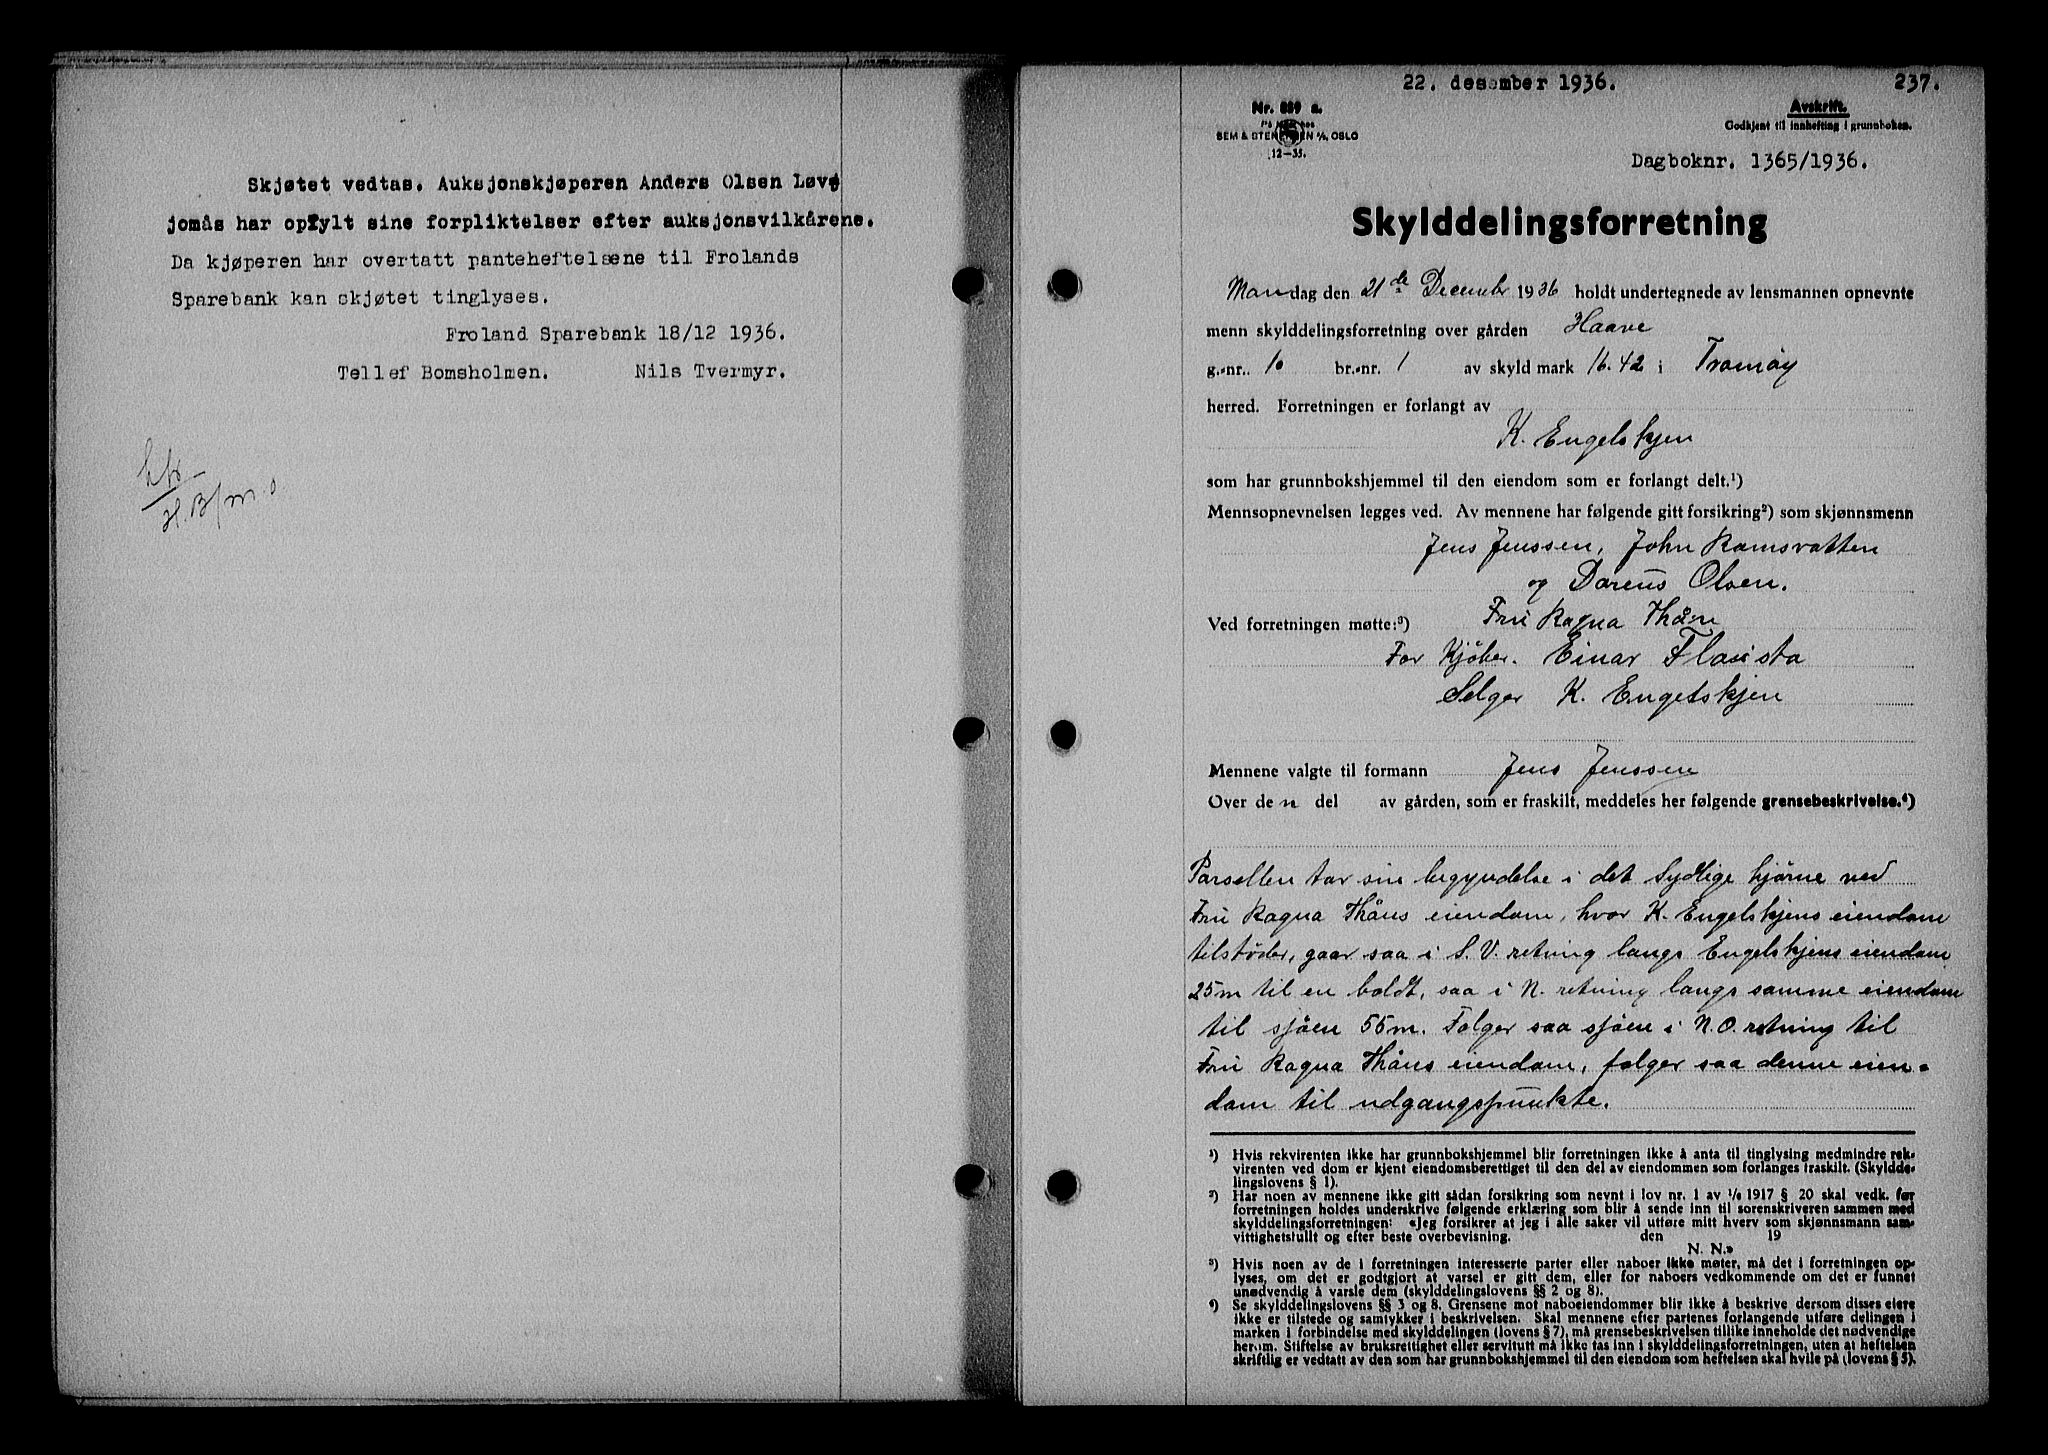 Skjøtet vedtas. Auksjonskjøperen Anders Olsen Løvj
jomås har opfylt sine forpliktelser efter auksjonsvilkårene.
Da kjøperen har overtatt panteheftelsene til Frolands
Sparebank kan skjøtet tinglyses.
Froland Sparebank 18/12 1936.
Tellef Bomsholmen. Nils Tvermyr.
H.B/m.o.
22. desember 1936. 237.
Nr. 839 a.
SEM & STENERSEN A/S, OSLO
12-35.
Avskrift.
Godkjent til innhefting i grunnboken.
Dagboknr. 1365/1936.
Skylddelingsforretning
Mandag den 21de December 1936 holdt undertegnede av lensmannen opnevnte
menn skylddelingsforretning over gården Haave
g.-nr. 10 br.-nr. 1 av skyld mark 16.42 i Tromøy
herred. Forretningen er forlangt av
K. Engelskjen
som har grunnbokshjemmel til den eiendom som er forlangt delt.¹)
Mennsopnevnelsen legges ved. Av mennene har følgende gitt forsikring²) som skjønnsmenn
Jens Jenssen, John Ramsvatten
og Dareus Olsen.
Ved forretningen møtte:³) Fru Ragna Thåne
For Kjøber. Einar Flausta
Selger K. Engelskjen
Mennene valgte til formann Jens Jenssen
Over de n del av gården, som er fraskilt, meddeles her følgende grensebeskrivelse.⁴)
Parsellen tar sin begyndelse i det Sydlige hjørne ved
Fru Ragna Thåns eiendom, hvor K. Engelskjens eiendom
tilstøder, gaar saa i S.V. retning langs Engelskjens eiendom
25m til en boldt, saa i N. retning langs samme eiendom
til sjøen 55m. Følger saa sjøen i N.O. retning til
Fru Ragna Thåns eiendom, følger saa denne eien-
dom til udgangspunkte.
¹) Hvis rekvirenten ikke har grunnbokshjemmel blir forretningen ikke å anta til tinglysing medmindre rek-
virenten ved dom er kjent eiendomsberettiget til den del av eiendommen som forlanges fraskilt. (Skyldde-
lingslovens § 1).
²) Har noen av mennene ikke gitt sådan forsikring som nevnt i lov nr. 1 av 1/6 1917 § 20 skal vedk. før
forretningen holdes underskrive følgende erklæring som blir å sende inn til sorenskriveren sammen med
skylddelingsforretningen: «Jeg forsikrer at jeg i alle saker vil utføre mitt hverv som skjønnsmann sam-
vittighetsfullt og efter beste overbevisning. den 19
N. N.»
³) Hvis noen av de i forretningen interesserte parter eller naboer ikke møter, må det i forretningen op-
lyses, om det er godtgjort at varsel er gitt dem, eller for naboers vedkommende om det er funnet
unødvendig å varsle dem (skylddelingslovens §§ 2 og 8).
⁴) Se skylddelingslovens §§ 3 og 8. Grensene mot naboeiendommer blir ikke å beskrive dersom disses eiere
ikke er tilstede og samtykker i beskrivelsen. Skal mennene efter partenes forlangende utføre delingen i
marken i forbindelse med skylddelingen (lovens § 7), må grensebeskrivelsen tillike inneholde det nødvendige
herom. Stiftelse av bruksrettighet eller servitutt må ikke tas inn i skylddelingsforretningen, uten at heftelsen
skriftlig er vedtatt av den som har grunnbokshjemmel til den eiendom som heftelsen skal hvile på (lovens § 5).